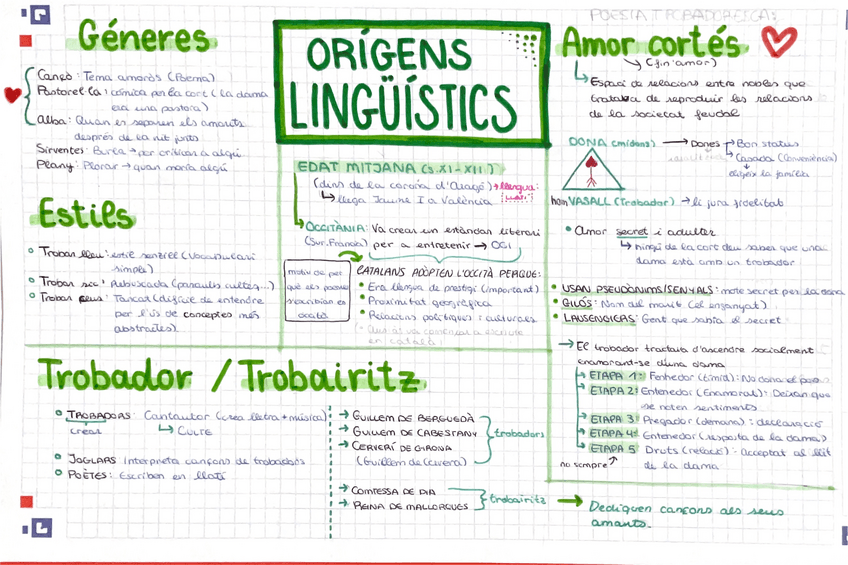 POESIA TROBADORESCA:
Géneres
Cançó: Tema amorós (Poema)
Pastorel·la: còmica per la cort (la dama
era una pastora)
Alba: Quan es separen els amants
després de la nit junts
Sirventes: Burla → per criticar a algú
Plany: Plorar → quan moria algú
Estils
Trobar lleu: estil senzill (Vocabulari
simple)
Trobar ric: Rebuscada (paraules cultes...)
Trobar clus: Tancat (difícil de entendre
per l'ús de conceptes més
abstractes)
ORÍGENS
LINGÜÍSTICS
EDAT MITJANA (s.XI-XII)
(dins de la corona d'Aragó) → llengua:
llega Jaume I a València
OCCITÀNIA: Va crear un estàndar literari
(Sur Francia) per a entretenir → OCI
motiu de per
què els poetes
escribian en
occità
CATALANS ADOPTEN L'OCCITÀ PERQUE:
Era llengua de prestigi (important)
Proximitat geogràfica
Relacions polítiques i culturals
en català
Amor cortés
(fin'amor)
Espai de relacions entre nobles que
tractava de reproduir les relacions
de la societat feudal
DONA (midons) → Dones → Bon status
Casada (Conveniència)
elegix la família
hom VASALL (Trobador) → li jura fidelitat
Amor secret i adulter
ningú de la cort deu saber que una
dama està amb un trobador
USAN PSEUDÒNIMS/SENYALS: mote secret per la dona
GILÓS: Nom del marit (el enganyat)
LAUSENGIERS: Gent que sabia el secret
El trobador tractava d'ascendre socialment
enamorant-se d'una dama
ETAPA 1: Fenhedor (tímid): No dona el pas
ETAPA 2: Entenedor (Enamorat): Deixan que
se noten sentiments
ETAPA 3: Pregador (demana): declaració
ETAPA 4: Entenedor (resposta de la dama)
ETAPA 5 Druts (relació): Acceptat al llit
no sempre de la dama
Trobador / Trobairitz
TROBADORS: Cantautor (crea lletra + música)
crear → CULTE
JOGLARS Interpreta cançons de trobadors
POÈTES: Escriben en llatí
GUILLEM DE BERGUEDÀ
GUILLEM DE CABESTANY
CERVERÍ DE GIRONA
(Guillem de Cervera)
trobadors
COMTESSA DE DIA
REINA DE MALLORQUES
trobairitz
Dediquen cançons als seus
amants.